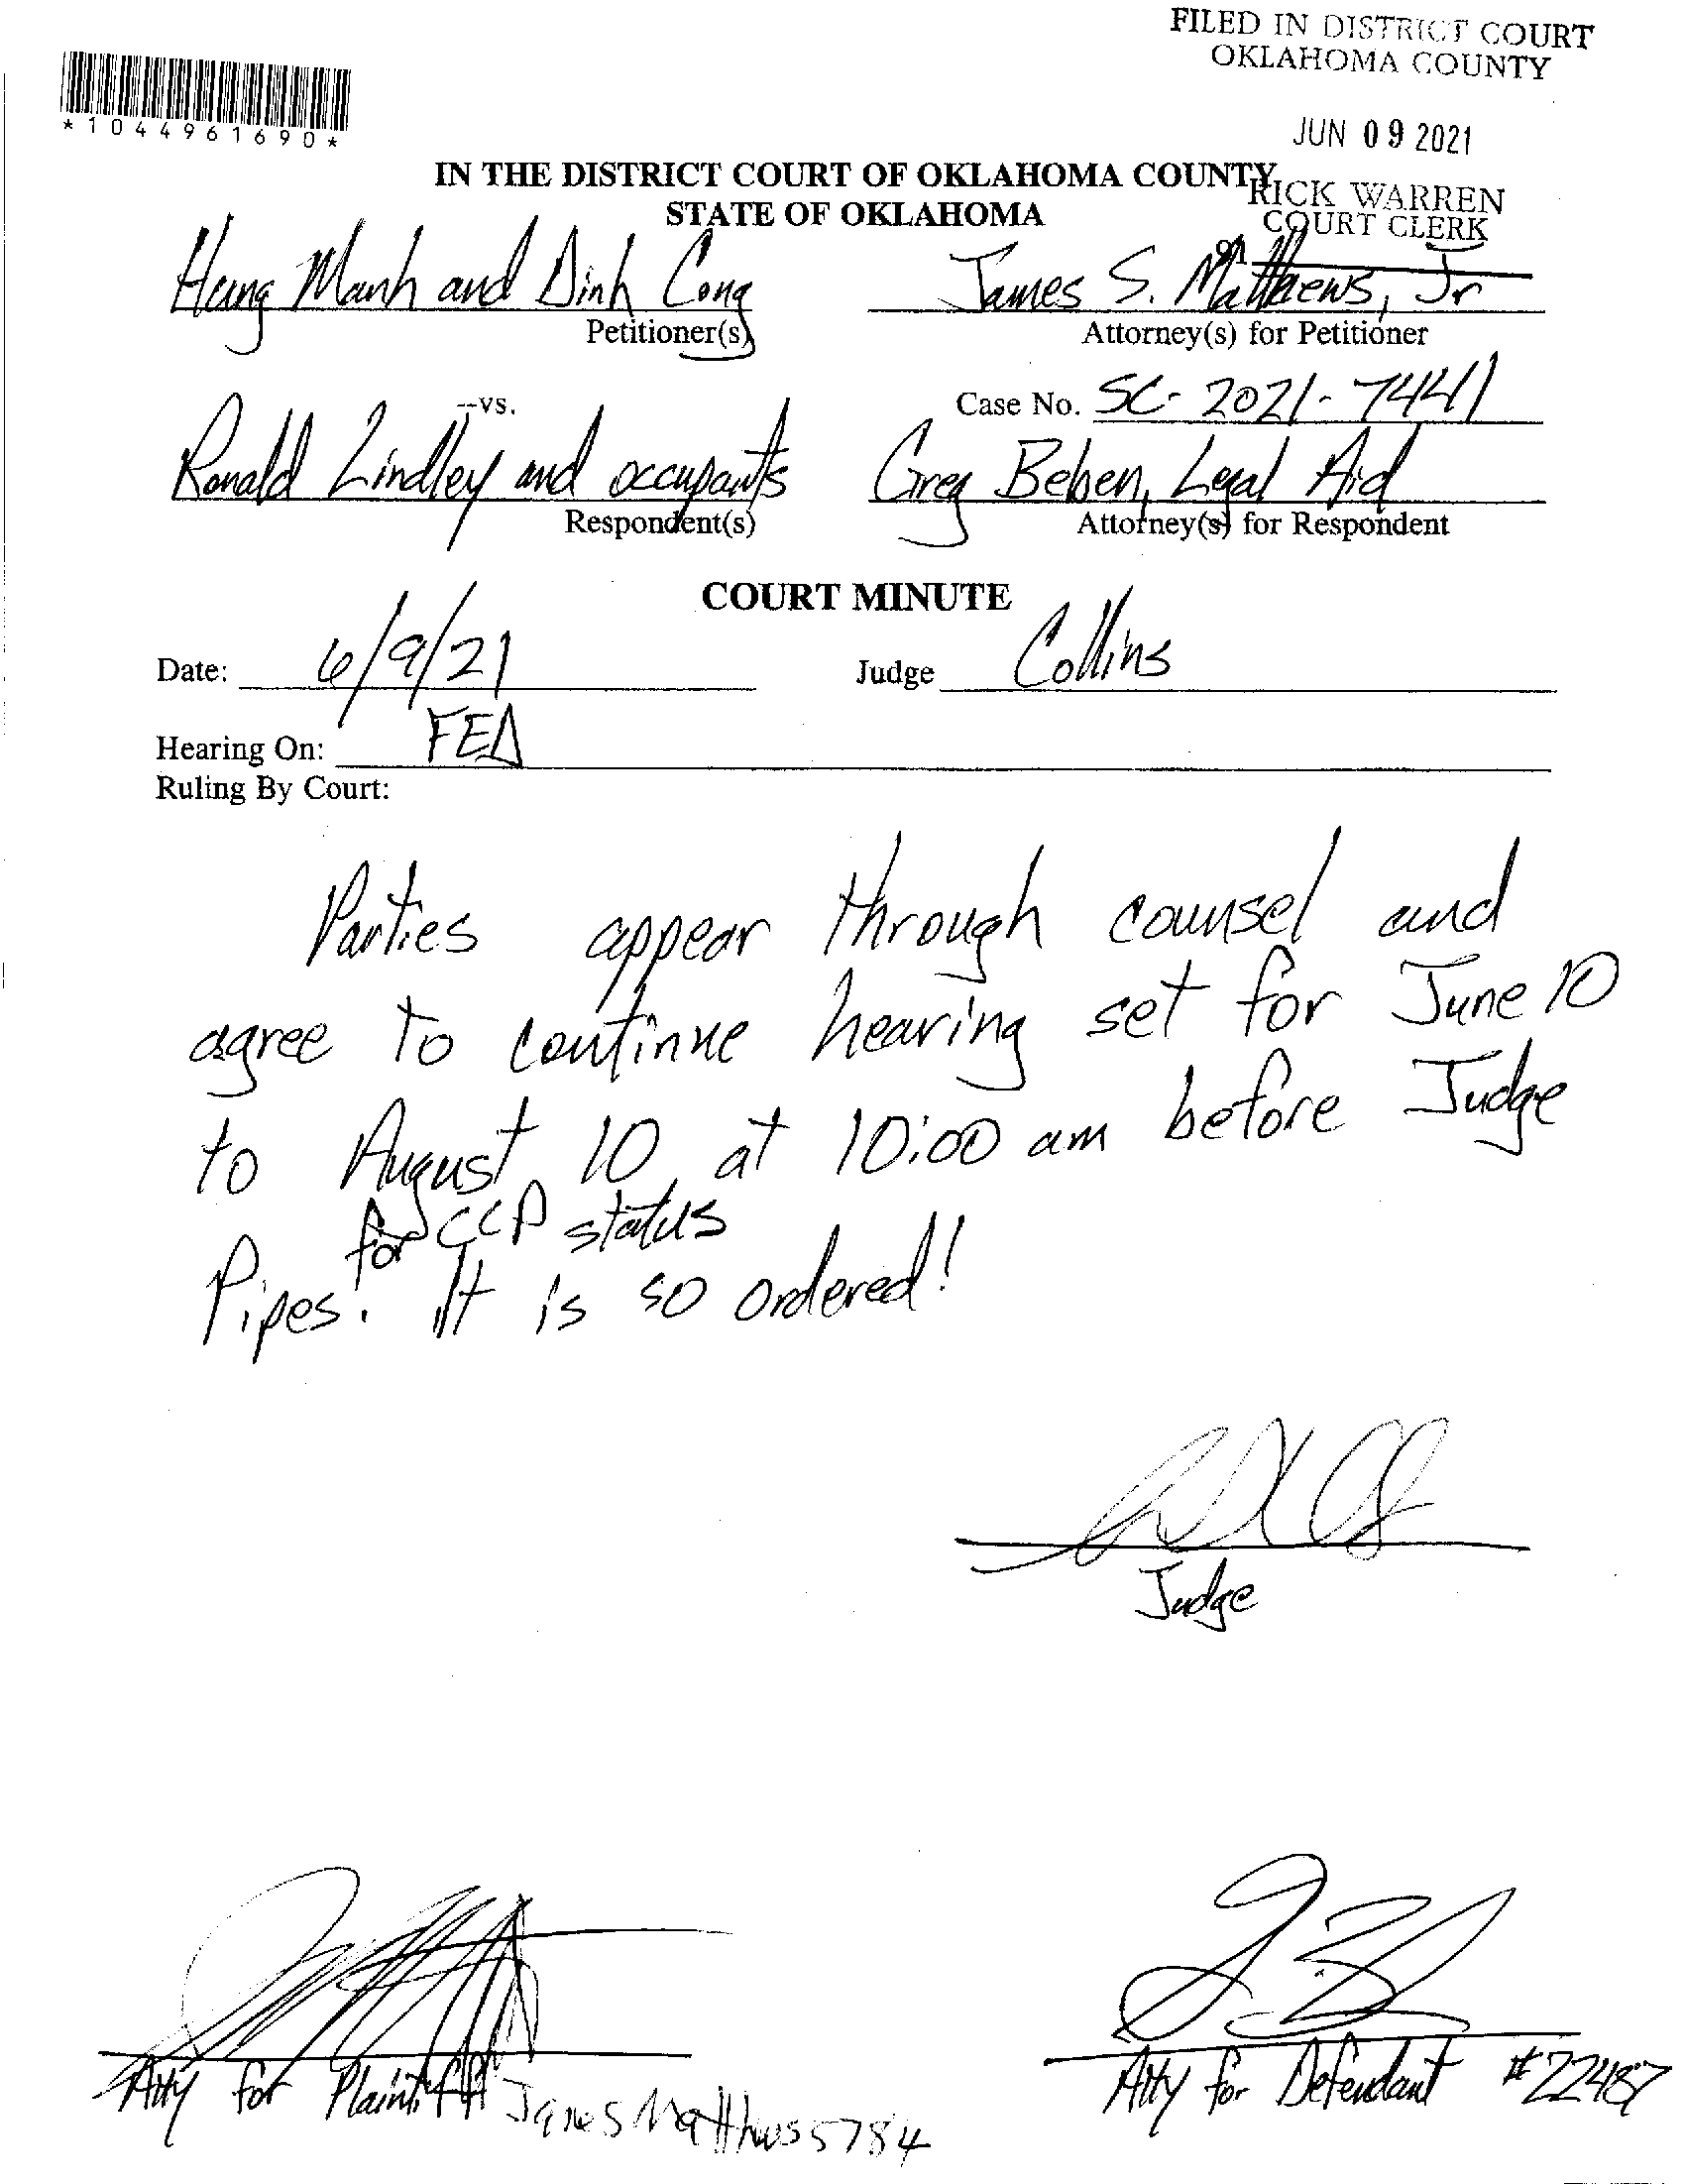 FILED IN DISTRICT COURT
OKLAHOMA COUNTY
JUN 09 2021
RICK WARREN
COURT CLERK
*1044961690*
IN THE DISTRICT COURT OF OKLAHOMA COUNTY
STATE OF OKLAHOMA
Hung Manh and Dinh Cong
Petitioner(s)
James S. Matthews, Jr
Attorney(s) for Petitioner
--vs.
Case No. SC-2021-7441
Ronald Lindley and occupants
Respondent(s)
Greg Beben, Legal Aid
Attorney(s) for Respondent
COURT MINUTE
Date: 6/9/21
Judge Collins
Hearing On: FED
Ruling By Court:
Parties appear through counsel and
agree to continue hearing set for June 10
to August 10 at 10:00 am before Judge
for CCP status
Pipes. It is so ordered!
Judge
Atty for Plaintiff James Matthews 5784
Atty for Defendant #22487